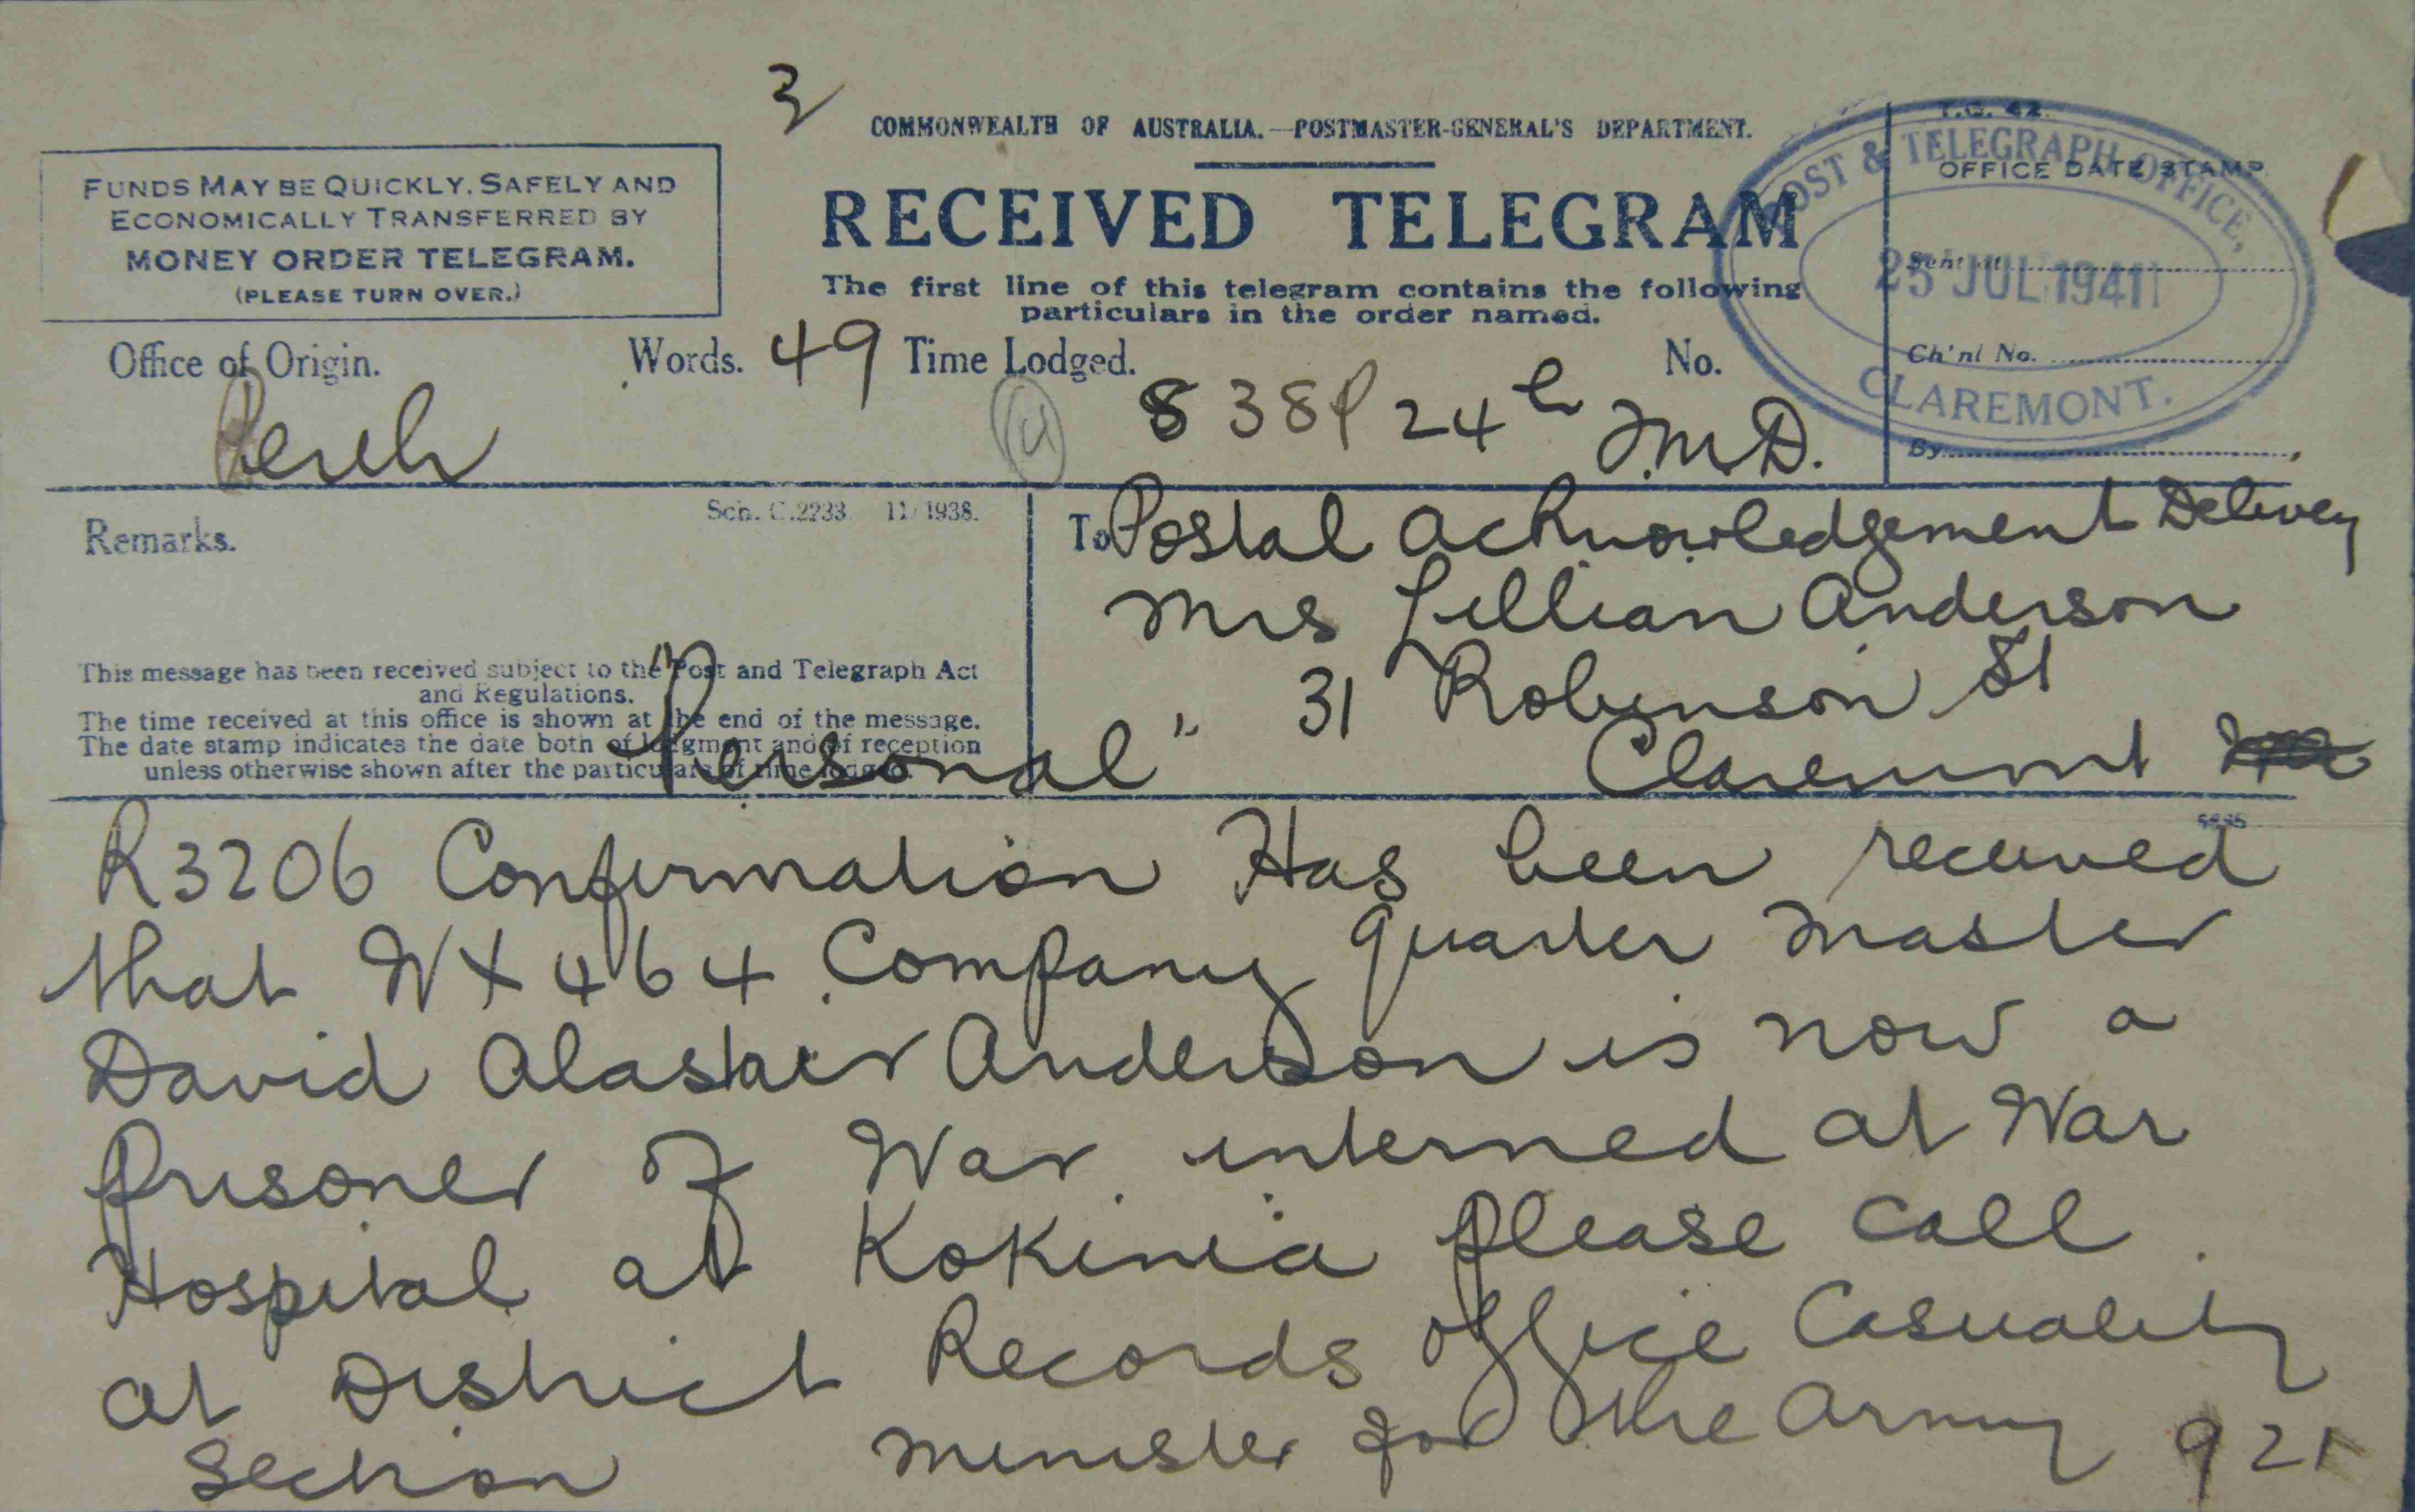 3
COMMONWEALTH OF AUSTRALIA.—POSTMASTER-GENERAL'S DEPARTMENT.
T.G. 42.
FUNDS MAY BE QUICKLY, SAFELY AND
ECONOMICALLY TRANSFERRED BY
MONEY ORDER TELEGRAM.
(PLEASE TURN OVER.)
RECEIVED TELEGRAM
The first line of this telegram contains the following
particulars in the order named.
OFFICE DATE STAMP
POST & TELEGRAPH OFFICE,
25 JUL 1941
CLAREMONT.
Sent at
Ch'nl No.
By
Office of Origin. Words. 49 Time Lodged. No.
Perth 8 38P 24th J.M.D.
Sch. C.2233. 11/1938.
Remarks.
To Postal acknowledgement Delivey
Mrs Lillian Anderson
31 Robinson St
Claremont
This message has been received subject to the Post and Telegraph Act
and Regulations.
The time received at this office is shown at the end of the message.
The date stamp indicates the date both of lodgment and of reception
unless otherwise shown after the particulars of time lodged.
"Personal"
R3206 Confirmation Has been received
that WX464 Company quarter master
David Alastair Anderson is now a
prisoner of War interned at War
Hospital at Kokinia please call
at District Records office Casuality
Section Minister for the Army 921